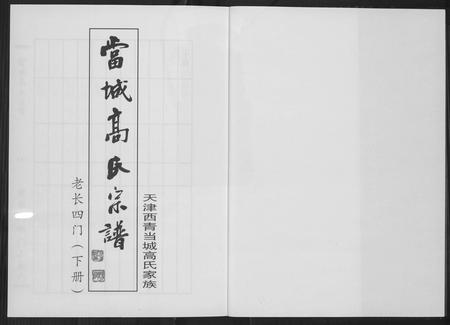 當城高氏宗譜
天津西青当城高氏家族
老长四门（下册）